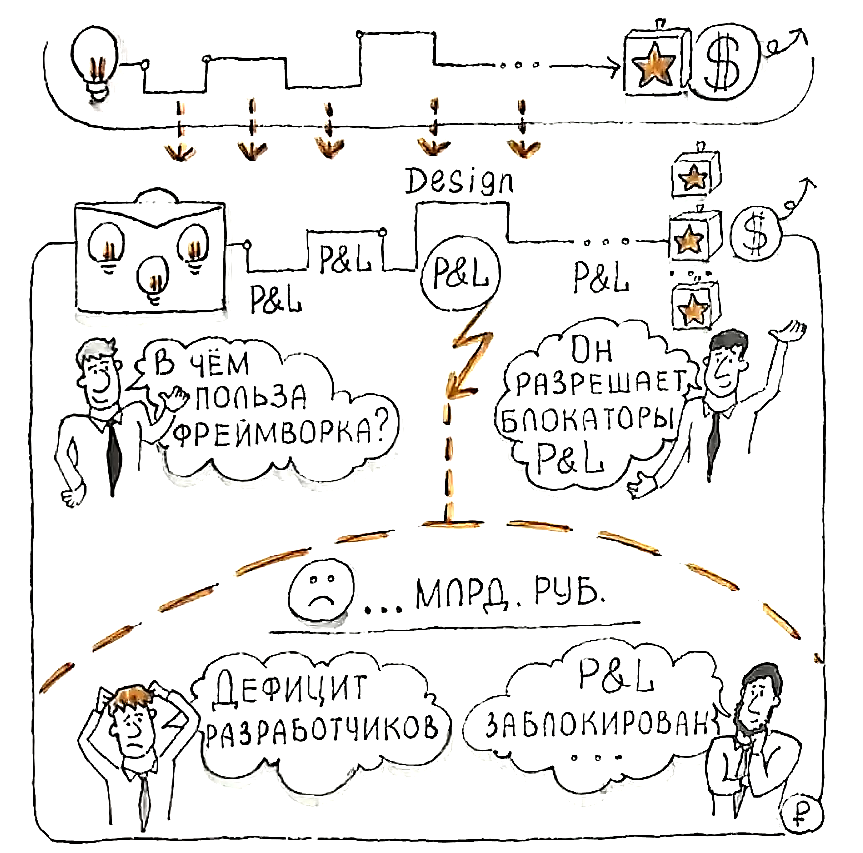 $
Design
P&L
P&L
P&L
P&L
$
В ЧЁМ
ПОЛЬЗА
ФРЕЙМВОРКА?
ОН
РАЗРЕШАЕТ
БЛОКАТОРЫ
P&L
... МЛРД. РУБ.
ДЕФИЦИТ
РАЗРАБОТЧИКОВ
P&L
ЗАБЛОКИРОВАН
...
₽